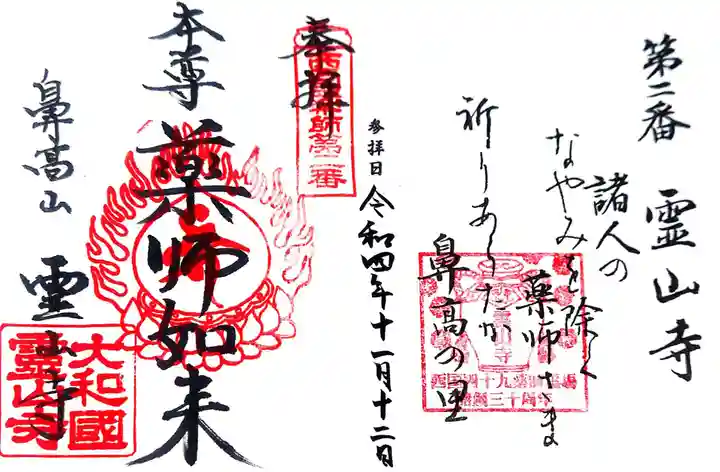 第二番 霊山寺
諸人の
なやみを除く
薬師さま
祈りあらたか
鼻高の里
参拝日 令和四年十一月十二日
奉拝
西国薬師第二番
本尊 薬師如来
鼻高山 霊山寺
大和國
霊山寺
霊山寺
西国四十九薬師霊場
開創三十周年